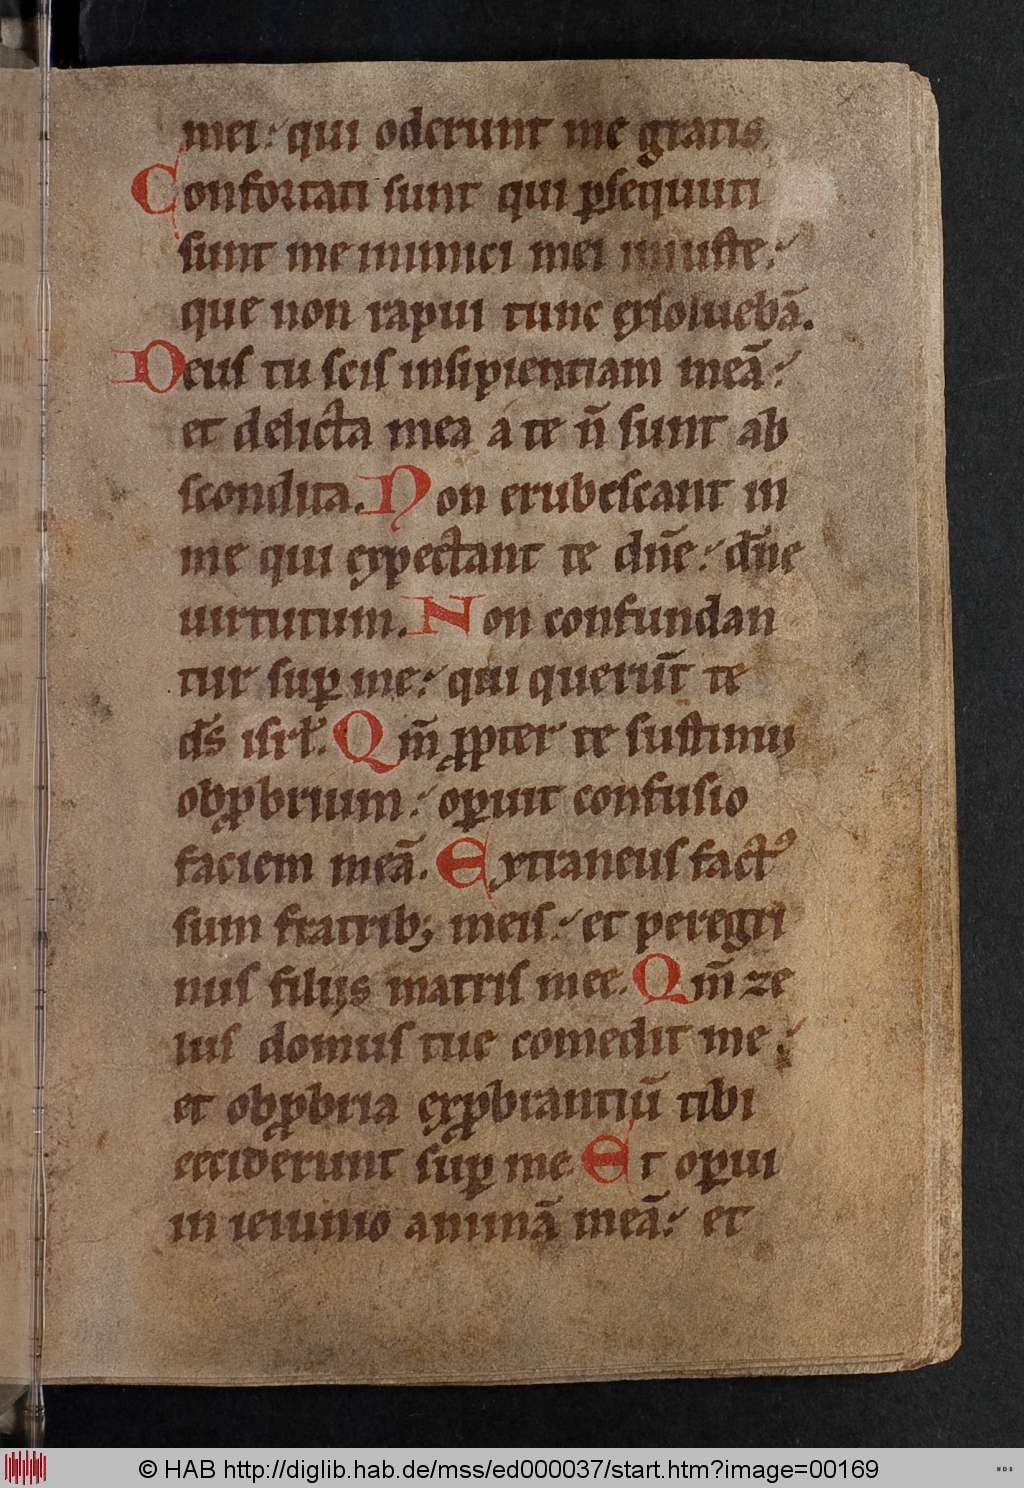 mei: qui oderunt me gratis.
Confortati sunt qui ꝑsequuti
sunt me inimici mei iniuste:
que non rapui tunc exsoluebā.
Deus tu scis insipientiam meā:
et delicta mea a te n̄ sunt ab
scondita. Non erubescant in
me qui expectant te dn̄e: dn̄e
uirtutum. Non confundan
tur suꝑ me: qui querūt te
ds̄ isrł. Qm̄ ꝓpter te sustinui
obꝓbrium: oꝑuit confusio
faciem meā. Extraneus factꝰ
sum fratrib; meis: et peregri
nus filijs matris mee. Qm̄ ze
lus domus tue comedit me:
et obꝓbria exꝓbrantiū tibi
ceciderunt suꝑ me Et oꝑui
in ieiunio animā meā: et
© HAB http://diglib.hab.de/mss/ed000037/start.htm?image=00169